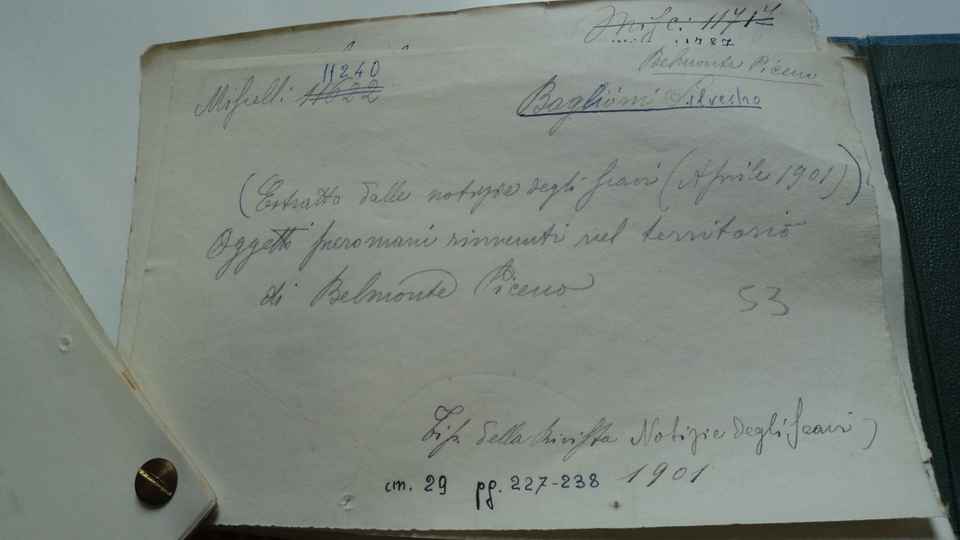 Belmonte Piceno
11240
Miscell: 11622
Baglioni Silvestro
(Estratto dalle notizie degli scavi (Aprile 1901))
Oggetti preromani rinvenuti nel territorio
di Belmonte Piceno
53
Tip. della Rivista Notizie degli scavi
cm. 29 pg. 227-238 1901